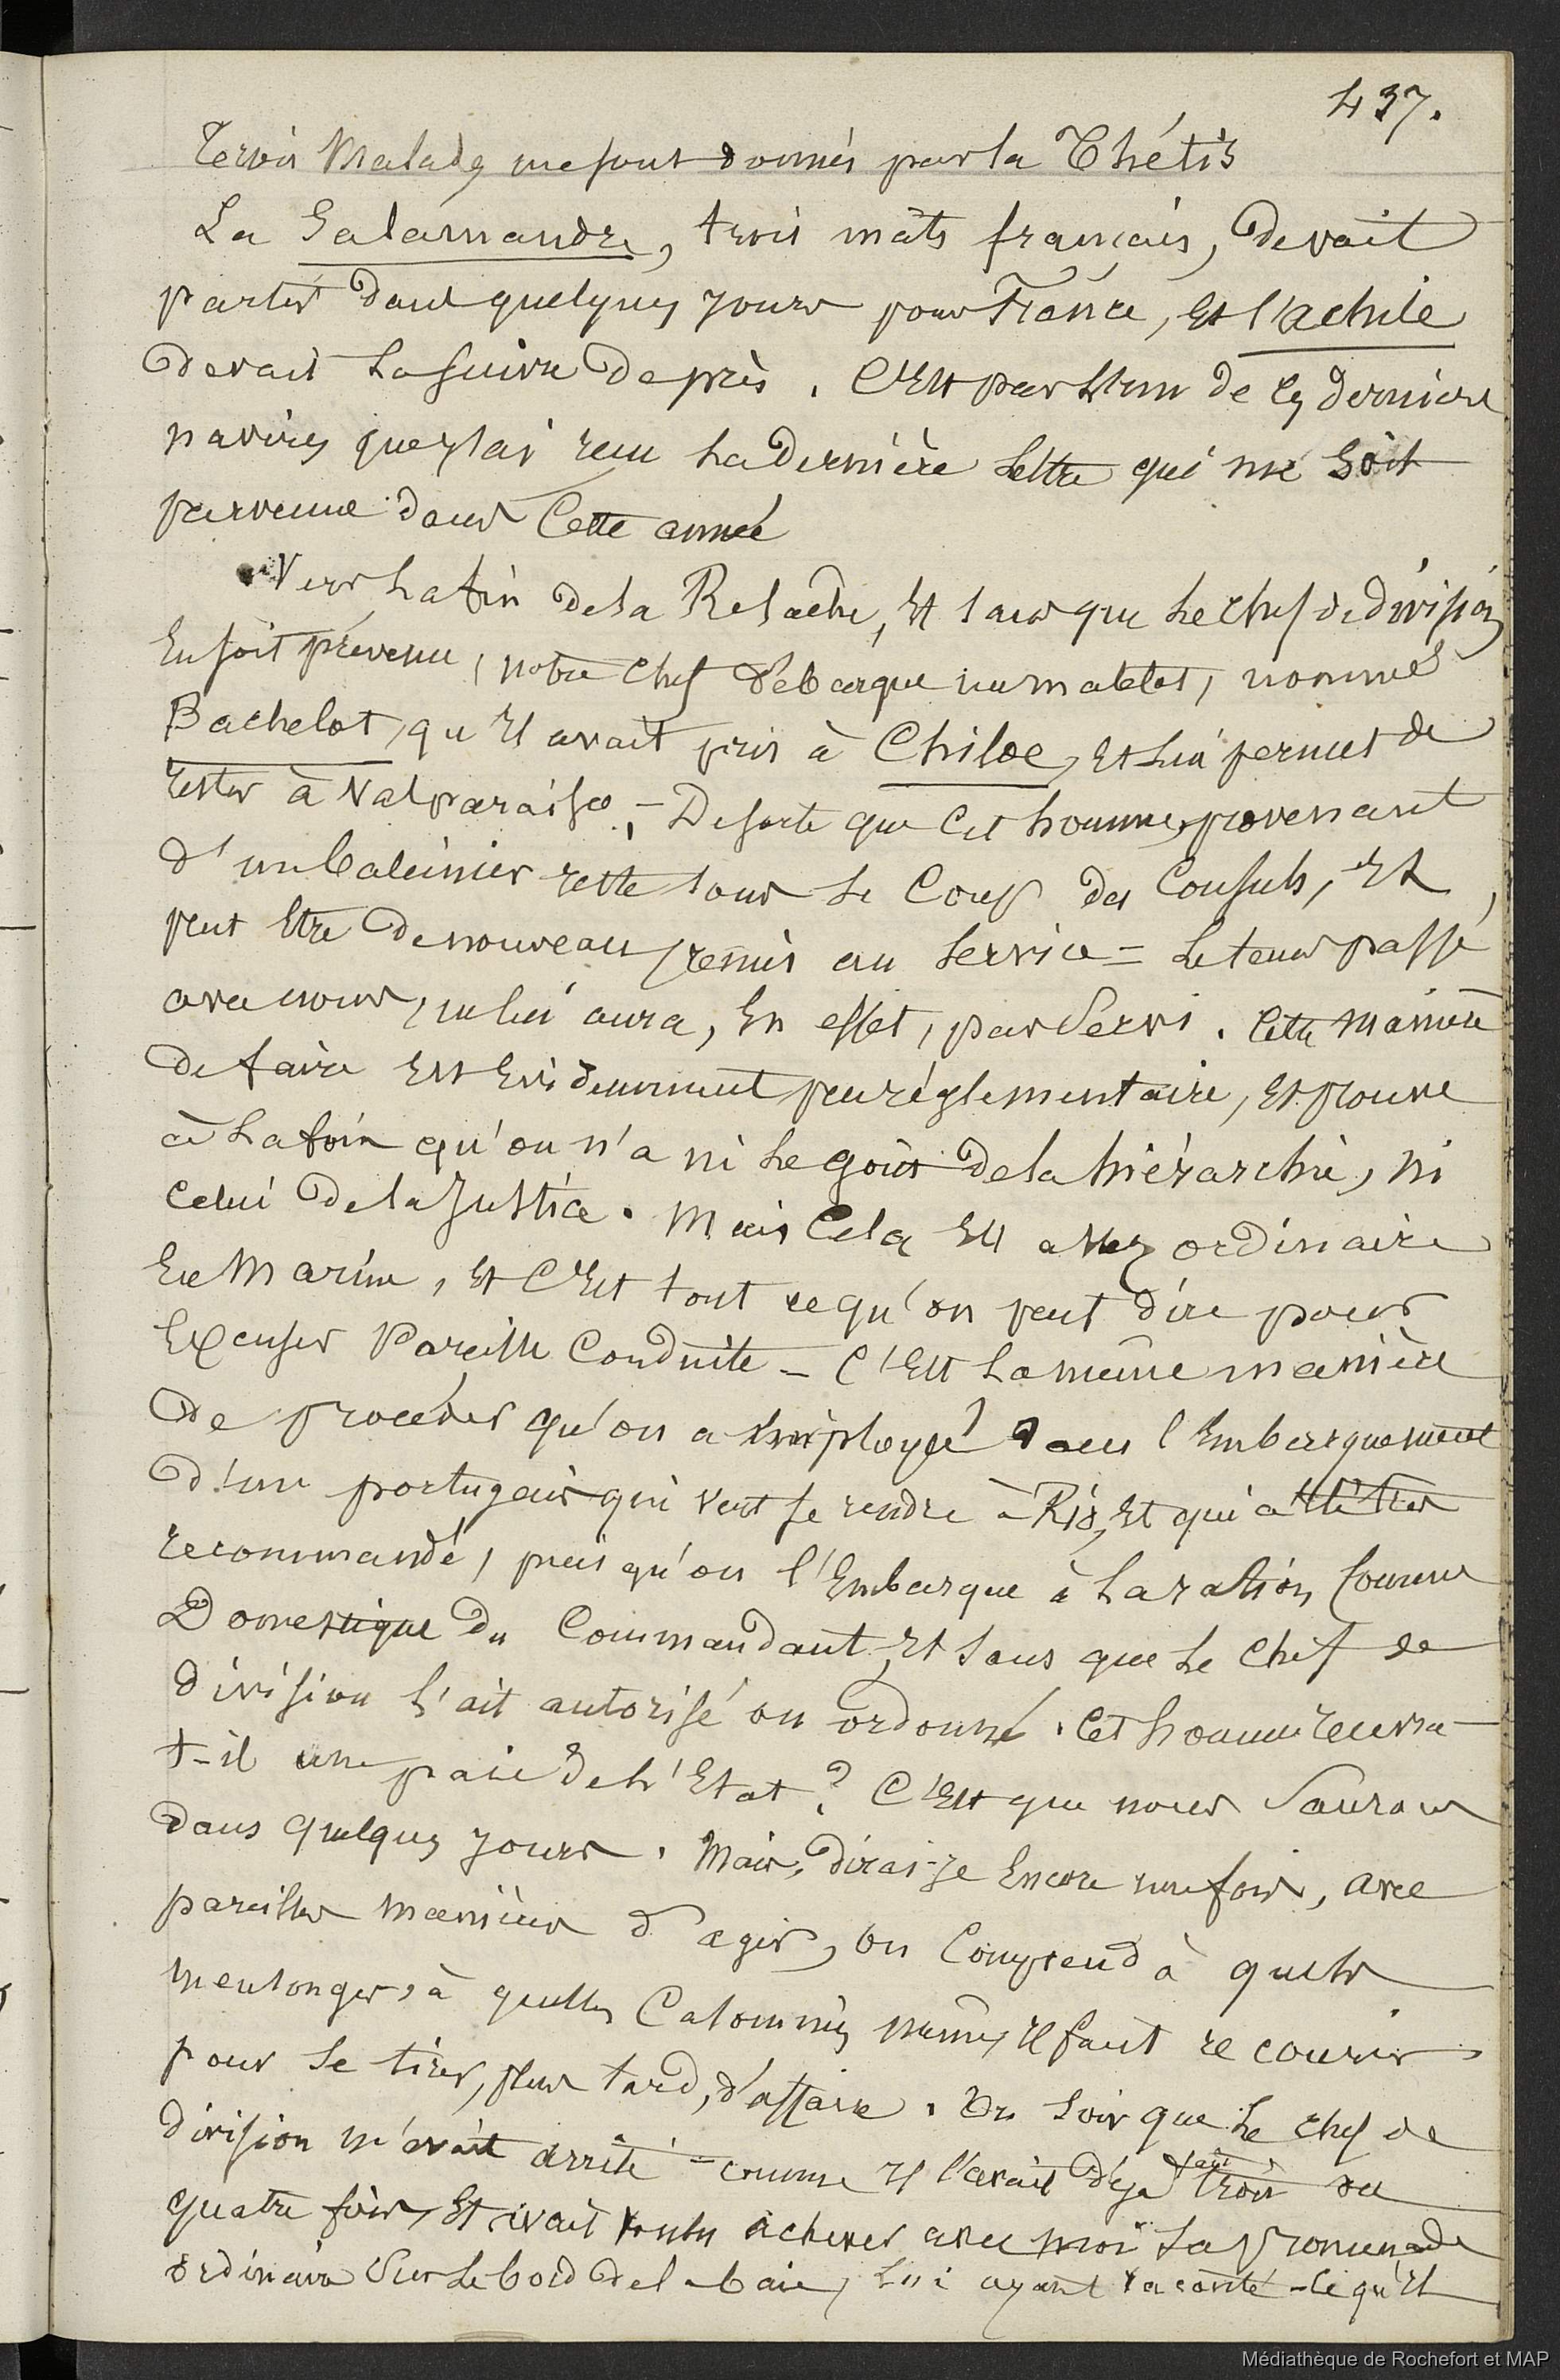 437.
Trois Malades me sont donnés par la Thétis
La Salamandre, trois mâts français, devait
partir dans quelques jours pour France, et l'achile
devait la suivre de près. C'est par l'un de ces derniers
navires que j'ai reçu la dernière lettre qui me soit
parvenue dans cette année
Vers la fin de la Relache, et sans que le chef de division
en soit prévenu, notre chef débarque un matelot, nommé
Bachelot, qu'il avait pris à Chiloe, et lui permet de
rester à Valparaiso, - De sorte que cet homme, provenant
d'un baleinier reste sous le coup des Consuls, et
peut être de nouveau remis au service = le tems passé
avec nous, ne lui aura, en effet, pas servi. Cette manière
de faire est evidemment peu réglementaire, et prouve
à la fois qu'on n'a ni le goût de la hiérarchie, ni
celui de la justice. Mais cela est assez ordinaire
en marine, et c'est tout ce qu'on peut dire pour
excuser pareille conduite - c'est la même manière
de procéder qu'on a employé dans l'embarquement
d'un portugais qui veut se rendre à Rio, et qui a été très
recommandé, puisqu'on l'embarque à la ration comme
Domestique du Commandant, et sans que le chef de
division l'ait autorisé ou ordonné. Cet homme recevra-
t-il une paie de l'Etat? C'est que nous saurons
dans quelques jours. Mais, dirai-je encore une fois, avec
pareilles manières d'agir, on comprend à quels
mensonges, à quelles calomnies même, il faut recourir
pour se tirer, plus tard, d'affaire. Un soir que le chef de
division m'avait arrêté - comme il l'avait déjà fait trois ou
quatre fois, et avait voulu achever avec moi sa promenade
ordinaire sur le bord de la baie, lui ayant raconté - ce qu'il
Médiathèque de Rochefort et MAP